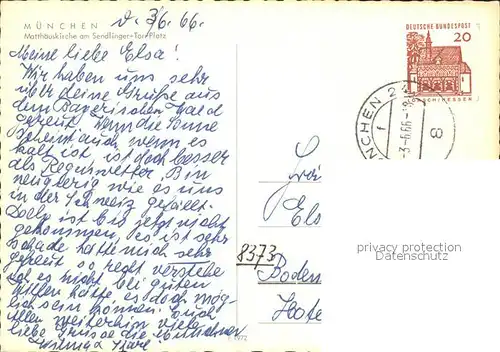 MÜNCHEN
Matthäuskirche am Sendlinger-Tor-Platz
d. 3/6. 66.
Meine liebe Elsa!
Wir haben uns sehr
über deine Grüße aus
dem Bayerischen Wald
gefreut. Wenn die Sonne
scheint auch wenn es
kalt ist, ist doch besser
als Regenwetter. Bin
neugierig wie es uns
in der Schweiz gefällt.
ist bis jetzt nicht
gekommen, es ist sehr
schade hätte mich sehr
gefreut so recht verstehe
ich es nicht bei guten
Willen hätte es doch mög-
lich sein können. Euch
allen weiterhin viele
liebe Grüße die Münchner
DEUTSCHE BUNDESPOST
20
LORSCH/HESSEN
MÜNCHEN 2
8373
Boden
Hote
privacy protection
Datenschutz